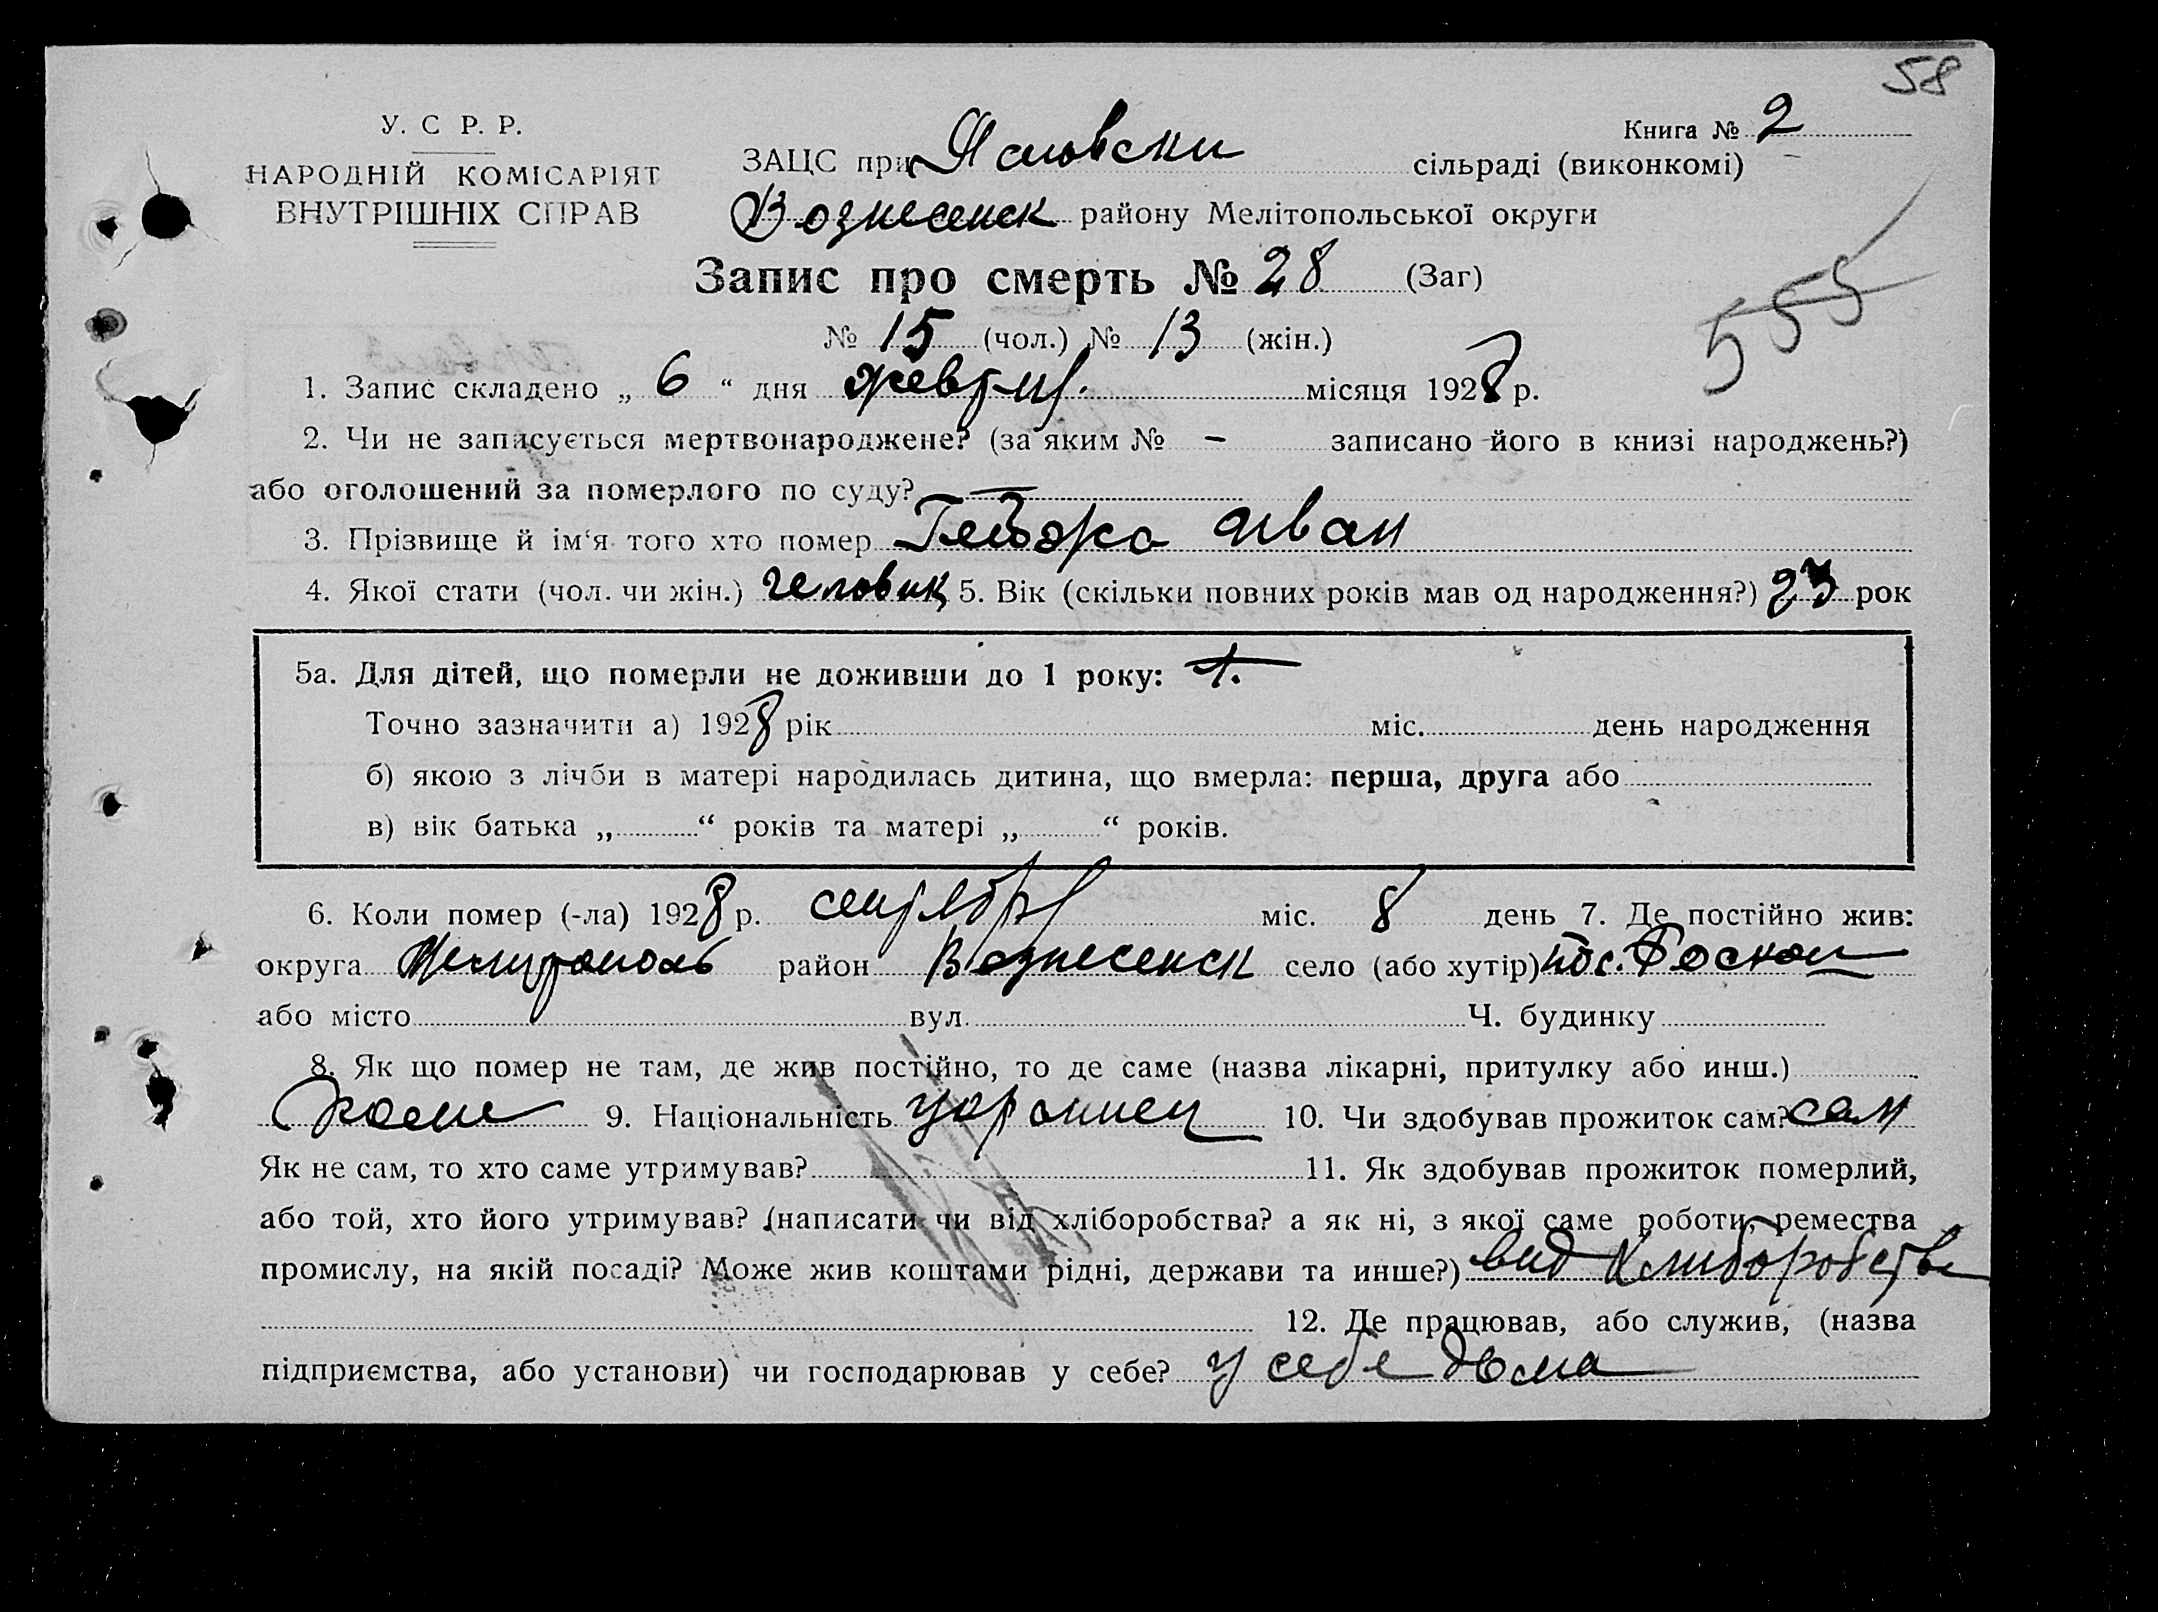 58
У. С. Р. Р.
НАРОДНІЙ КОМІСАРІЯТ
ВНУТРІШНІХ СПРАВ
Книга № 2
ЗАЦС при сільраді (виконкомі)
Вознесенск району Мелітопольської округи
Запис про смерть № 28 (Заг)
555
№ 15 (чол.) № 13 (жін.)
1. Запис складено „ 6 “ дня місяця 1928 р.
2. Чи не записується мертвонароджене? (за яким № – записано його в книзі народжень?)
або оголошений за померлого по суду? —
3. Прізвище й ім‘я того хто помер Иван
4. Якої стати (чол. чи жін.) человик 5. Вік (скільки повних років мав од народження?) 23 рок
5а. Для дітей, що померли не доживши до 1 року:
Точно зазначити а) 1928 рік міс. день народження
б) якою з лічби в матері народилась дитина, що вмерла: перша, друга або
в) вік батька „ “ років та матері „ “ років.
6. Коли помер (-ла) 1928 р. сентября міс. 8 день 7. Де постійно жив:
округа Мелитополь район Вознесенск село (або хутір) пос.
або місто вул. Ч. будинку
8. Як що помер не там, де жив постійно, то де саме (назва лікарні, притулку або инш.)
9. Національність 10. Чи здобував прожиток сам? сам
Як не сам, то хто саме утримував? 11. Як здобував прожиток померлий,
або той, хто його утримував? (написати чи від хліборобства? а як ні, з якої саме роботи, ремества
промислу, на якій посаді? Може жив коштами рідні, держави та инше?) вид хлиборобства
12. Де працював, або служив, (назва
підприємства, або установи) чи господарював у себе? у себе дома